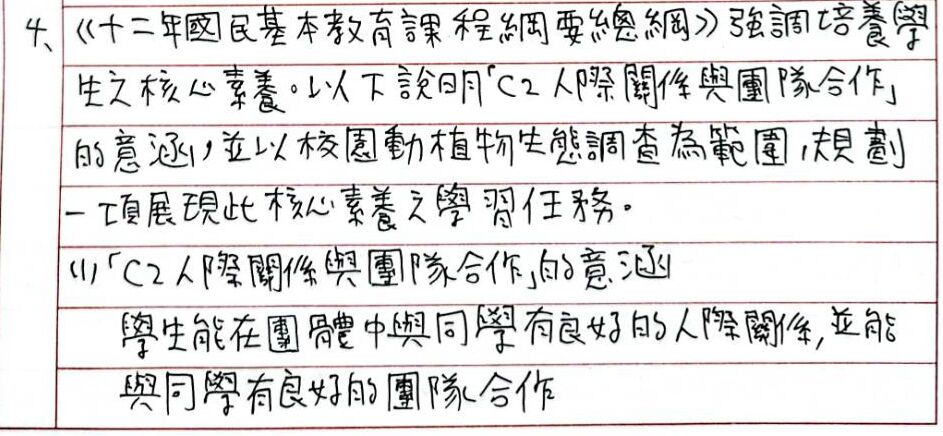 4、《十二年國民基本教育課程綱要總綱》強調培養學
生之核心素養。以下說明「C2人際關係與團隊合作」
的意涵,並以校園動植物生態調查為範圍,規劃
一項展現此核心素養之學習任務。
(1)「C2人際關係與團隊合作」的意涵
學生能在團體中與同學有良好的人際關係,並能
與同學有良好的團隊合作